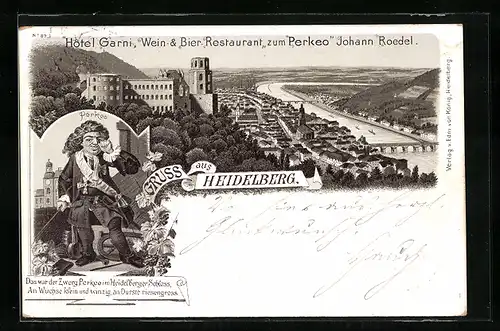 Nº 89
Hôtel Garni, "Wein- & Bier-Restaurant zum "Perkeo" Johann Roedel.
Verlag v. Edm. von König, Heidelberg
Perkeo
GRUSS aus
HEIDELBERG.
Das war der Zwerg Perkeo im Heidelberger Schloss,
An Wuchse klein und winzig, an Durste riesengross.
Glückwunsch